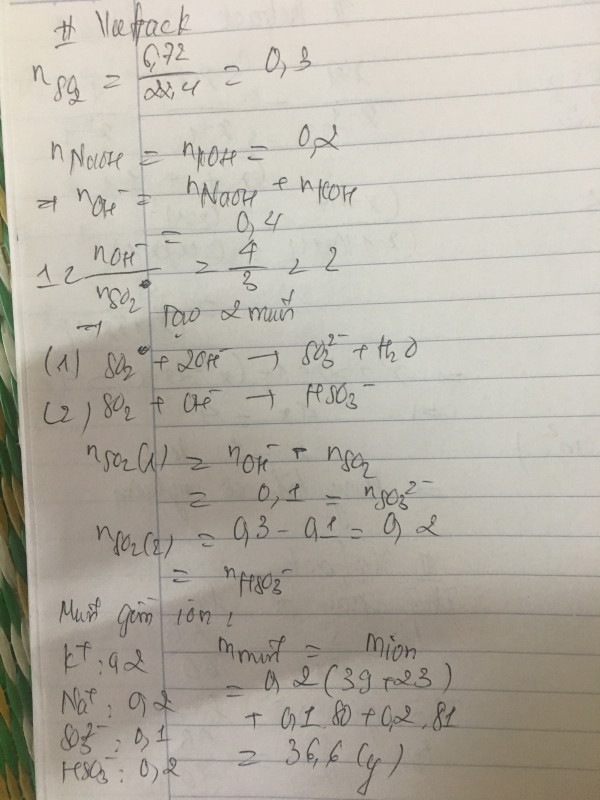 # Veefack
nSO2 = 6,72/22,4 = 0,3
nNaOH = nKOH = 0,2
⇒ nOH⁻ = nNaOH + nKOH
= 0,4
1 < nOH⁻/nSO2 = 4/3 < 2
→ Tạo 2 muối
(1) SO2 + 2OH⁻ → SO3²⁻ + H2O
(2) SO2 + OH⁻ → HSO3⁻
nSO2(1) = nOH⁻ - nSO2
= 0,1 = nSO3²⁻
nSO2(2) = 0,3 - 0,1 = 0,2
= nHSO3⁻
Muối gồm ion:
K⁺: 0,2 mmuối = mion
Na⁺: 0,2 = 0,2(39+23)
SO3²⁻: 0,1 + 0,1.80 + 0,2.81
HSO3⁻: 0,2 = 36,6 (g)